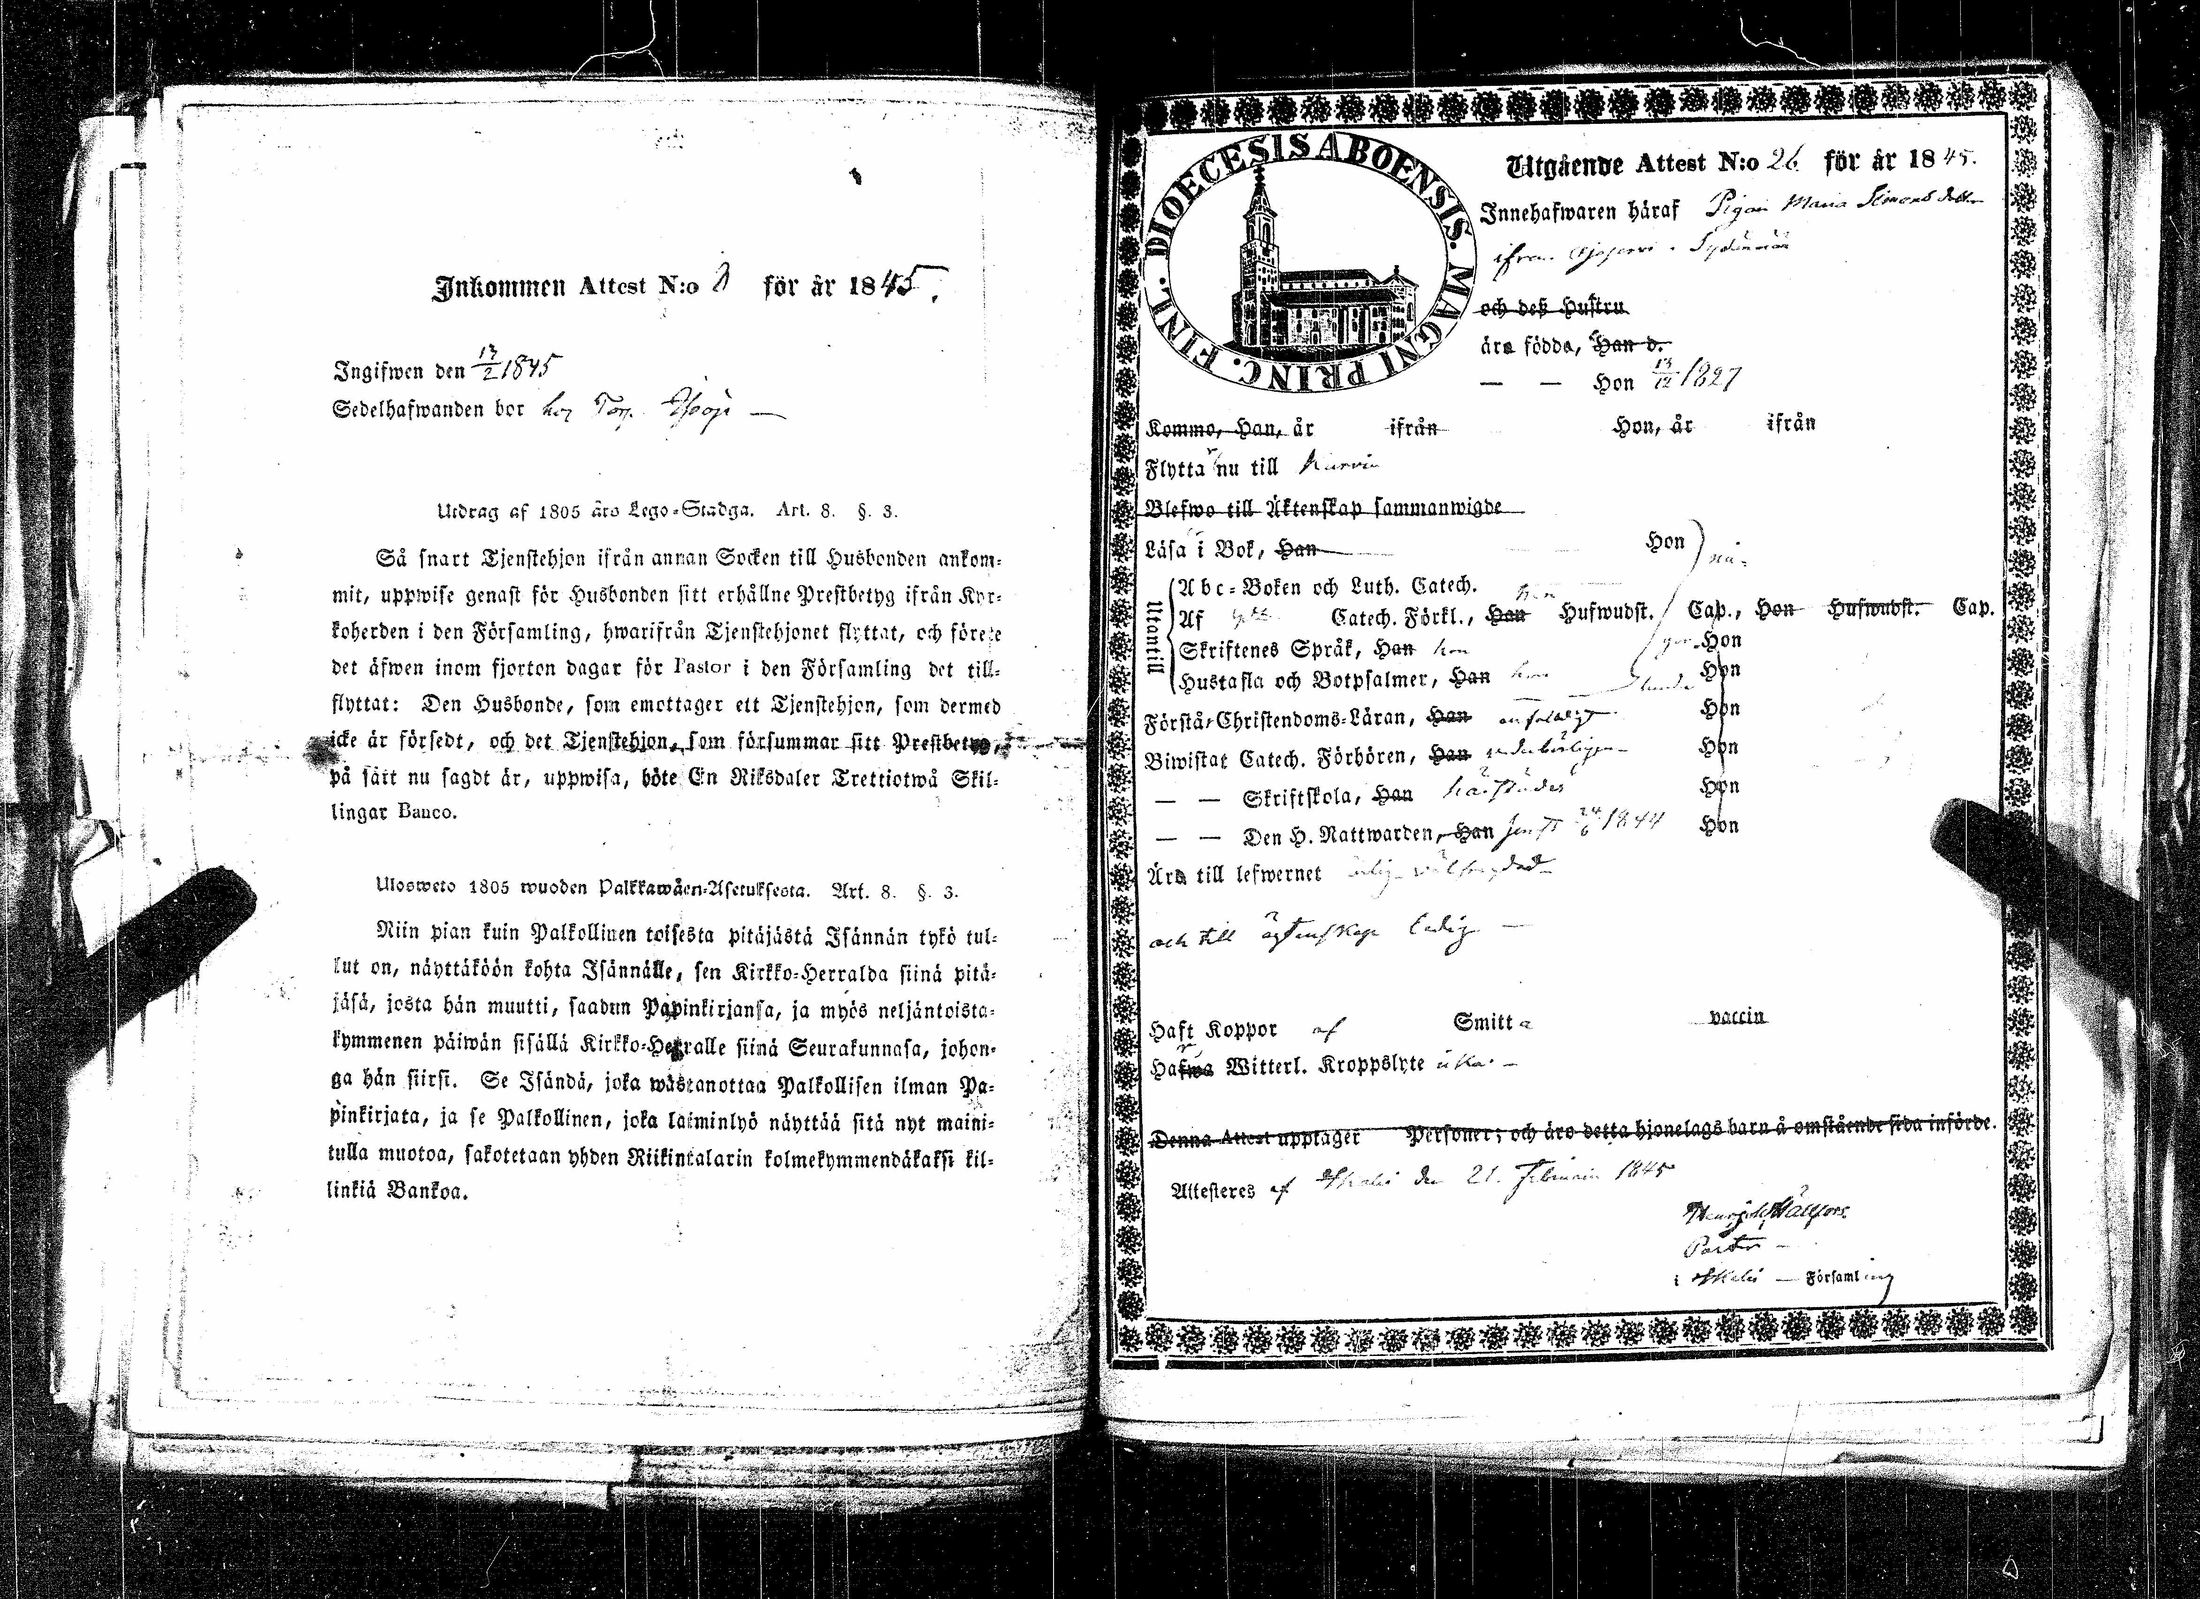 Inkommen Attest N:o för år 1845.
Ingifwen den 13/2 1845
Sedelhafwanden bor hos Torp.
Utdrag af 1805 års Lego-Stadga. Art. 8. §. 3.
Så snart Tjenstehjon ifrån annan Socken till Husbonden ankom-
mit, uppwise genast för Husbonden sitt erhållne Prestbetyg ifrån Kyr-
koherden i den Församling, hwarifrån Tjenstehjonet flyttat, och förete
det äfwen inom fjorton dagar för Pastor i den Församling det till-
flyttat: Den Husbonde, som emottager ett Tjenstehjon, som dermed
icke är försedt, och det Tjenstehjon, som försummar sitt Prestbetyg,
på sätt nu sagdt är, uppwisa, böte En Riksdaler Trettiotwå Skil-
lingar Banco.
Ulosweto 1805 wuoden Palkkawäen-Asetuksesta. Art. 8. §. 3.
Niin pian kuin Palkollinen toisesta pitäjästä Isännän tykö tul-
lut on, näyttäköön kohta Isännälle, sen Kirkko-Herralda siinä pitä-
jäsä, josta hän muutti, saadun Papinkirjansa, ja myös neljäntoista-
kymmenen päiwän sisällä Kirkko-Herralle siinä Seurakunnasa, johon-
ga hän siirsi. Se Isändä, joka wastanottaa Palkollisen ilman Pa-
pinkirjata, ja se Palkollinen, joka laiminlyö näyttää sitä nyt maini-
tulla muotoa, sakotetaan yhden Riikintalarin kolmekymmendäkaksi kil-
linkiä Bankoa.
DIOECESIS ABOENSIS. MAGNI PRINC. FINL.
Utgående Attest N:o 26 för år 1845.
Innehafwaren häraf Pigan Maria Simonsdotter
ifrån
och deß Hustru
äro födda, Han d.
— — Hon 13/12 1827
Komma, Han, år ifrån Hon, år ifrån
Flyttar nu till Karvia
Blefwo till Äktenskap sammanwigde
Läsa i Bok, Han Hon
Utantill
Abc-Boken och Luth. Catech. hon
Af Catech. Förkl., Han Hufwudst. Cap., Hon Hufwudst. Cap.
Skriftenes Språk, Han hon Hon
Hustafla och Botpsalmer, Han hon Hon
Förstå Christendoms-Läran, Han enfaldigt Hon
Biwistat Catech. Förhören, Han vederbörligen Hon
— — Skriftskola, Han härstädes Hon
— — Den H. Nattwarden, Han senst 24/6 1844 Hon
Äro till lefwernet ärlig wälfrejdad
och till ägtenskap ledig —
Haft Koppor af Smitta vaccin
Hafwa Witterl. Kroppslyte icke. —
Denna Attest upptager Personer; och äro detta hjonelags barn å omstående sida införde.
Attesteres af den 21. Februari 1845
Pastor —
i — Församling